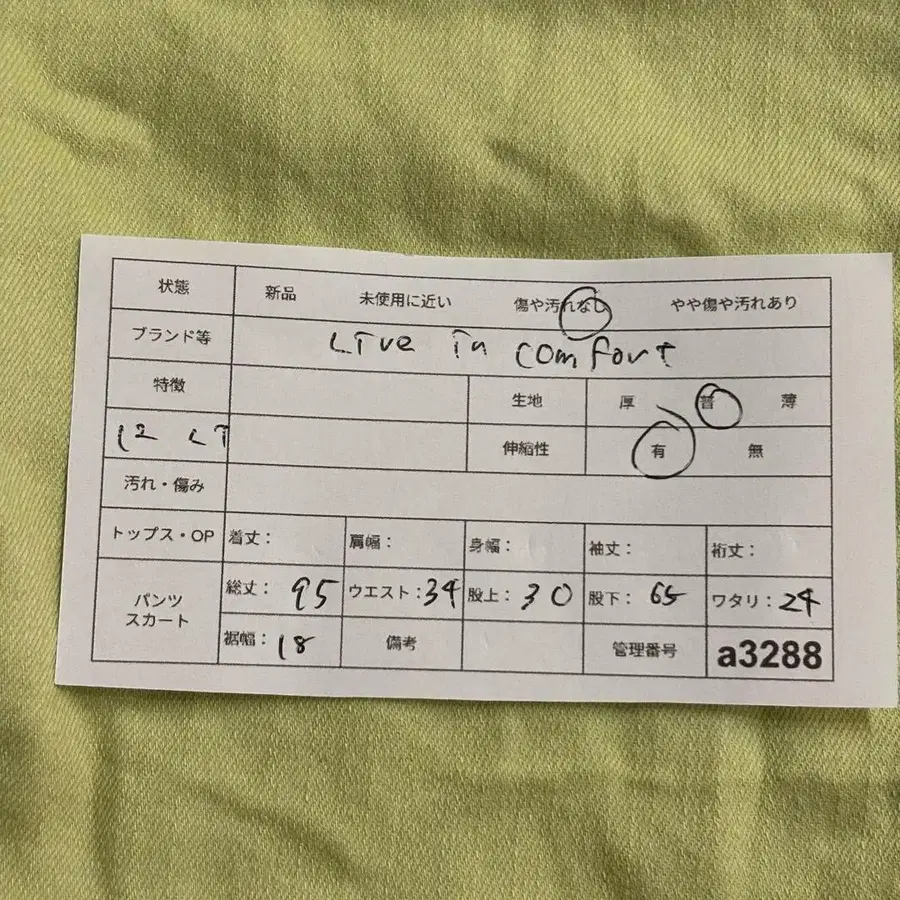 状態 新品 未使用に近い 傷や汚れなし やや傷や汚れあり
ブランド等 Live in comfort
特徴 生地 厚 普 薄
12 LT 伸縮性 有 無
汚れ・傷み
トップス・OP 着丈： 肩幅： 身幅： 袖丈： 裄丈：
パンツ スカート 総丈： 95 ウエスト：34 股上： 30 股下： 65 ワタリ：24
裾幅： 18 備考 管理番号 a3288